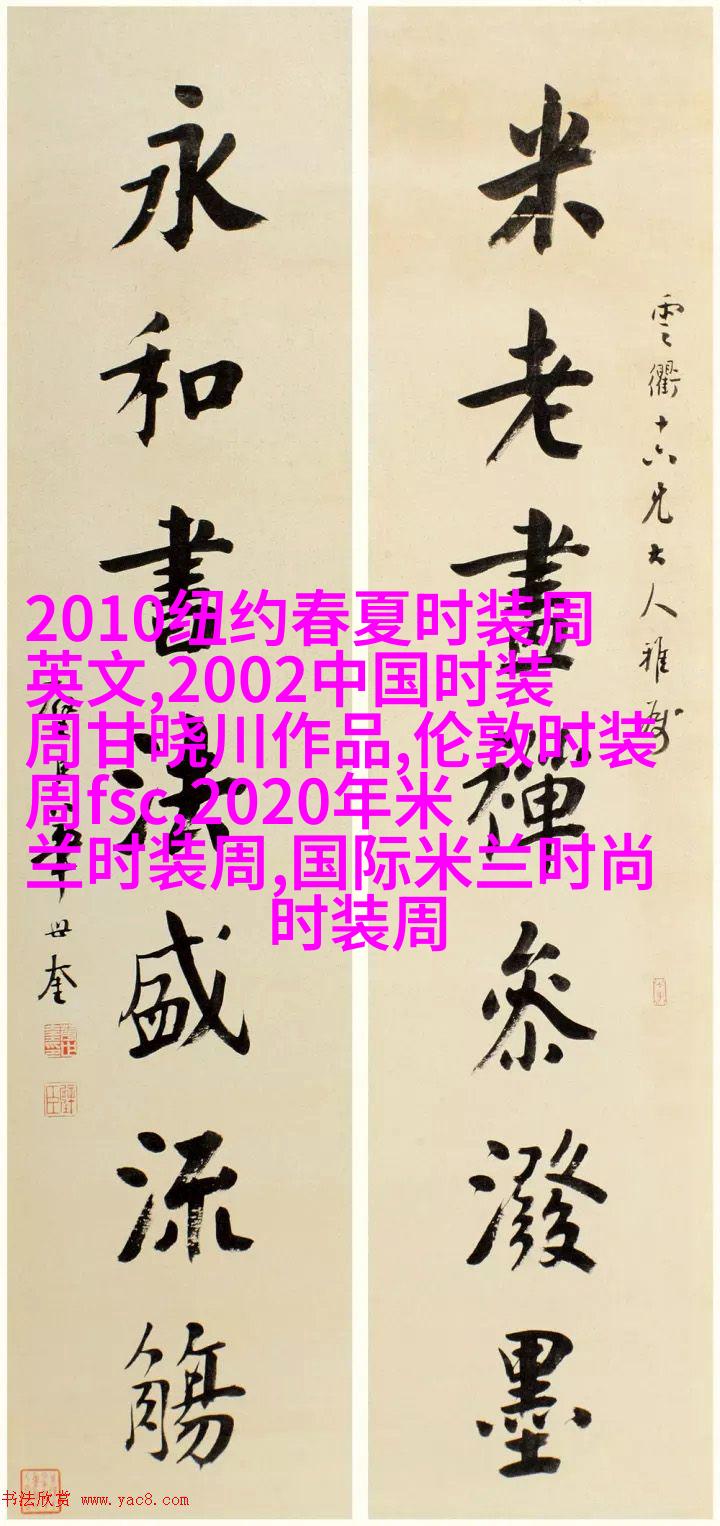 米老畫禪參潑墨
雲衢十六兄大人雅屬
永和書法盛流觴
世奎
2010纽约春夏时装周
英文,2002中国时装
周甘晓川作品,伦敦时装
周fsc,2020年米
兰时装周,国际米兰时尚
时装周
书法欣赏 www.yac8.com